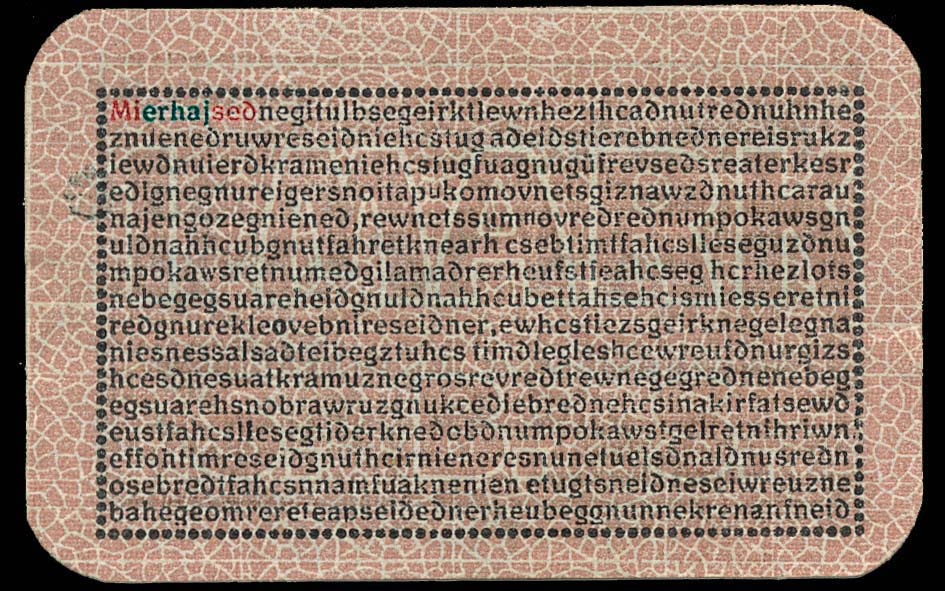 Mierhajsednegitulbsegeirktlewnhezthcadnutrednuhnhe
znuenedruwreseidniehcstug adeidstierebnednereisrukz
iewdnuierdkrameniehcstugfuagnugüfrevsedsreaterkesr
edlgnegnureigersnoitapukomovnetsgiznawzdnuthcarau
najengozegniened,rewnetssumnovredrednumpokawsgn
uldnahhcubgnutfahretknearh csebtimtfahcslleseguzdnu
mpokawsretnumedgilamadrerheufstfeahcseg hcrhezlots
nebegegsuareheidgnuldnahhcubettahsehcismiesseretni
redgnurekleovebnireseidner,ewhcstiezsgeirknegelegna
niesnessalsadteibegztuhcs timdlegleshcewreufdnurgizs
hcesdnesuatkramuznegrosrevredtrewnegegrednenebeg
egsuarehsnobrawruzgnukcedlebrednehcsinakirfatsewd
eustfahcsllesegtiderknedobdnumpokawstgelretnihriwn
effohtimreseidgnuthcirnieneresnunetuelsdnaldnusredn
osebredtfahcsnnamfuaknenien etugtsneidneseiwreuzne
bahegeomrereteapseidednerheubeggnunnekrenanfneid